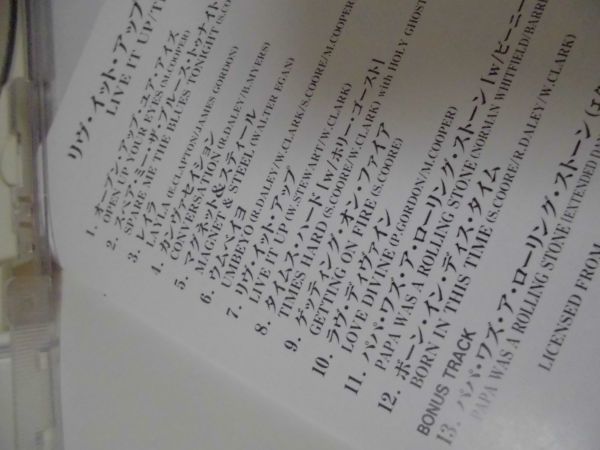 リヴ・イット・アップ
LIVE IT UP/T
1. オープン・アップ・ユア・アイズ
OPEN UP YOUR EYES (M.COOPER)
2. スペア・ミー・ザ・ブルーズ・トゥナイト
SPARE ME THE BLUES TONIGHT (S.CORE/M.COOPER)
3. レイラ
LAYLA (E.CLAPTON/JAMES GORDON)
4. カンヴァセイション
CONVERSATION (R.DALEY/B.MYERS)
5. マグネット&スティール
MAGNET & STEEL (WALTER EGAN)
6. ウムベイヨ
UMBEYO (R.DALEY/W.CLARK/S.COORE/M.COOPER)
7. リヴ・イット・アップ
LIVE IT UP (W.STEWART/W.CLARK)
8. タイムス・ハード [w/ホリー・ゴースト]
TIMES HARD (S.COORE/W.CLARK) with HOLY GHOST
9. ゲッティング・オン・ファイア
GETTING ON FIRE (S.COORE)
10. ラヴ・ディヴァイン
LOVE DIVINE (P.GORDON/M.COOPER)
11. パパ・ワズ・ア・ローリング・ストーン [w/ビーニー
PAPA WAS A ROLLING STONE (NORMAN WHITFIELD/BARR
12. ボーン・イン・ディス・タイム
BORN IN THIS TIME (S.COORE/R.DALEY/W.CLARK)
BONUS TRACK
13. パパ・ワズ・ア・ローリング・ストーン (エク
PAPA WAS A ROLLING STONE (EXTENDED D
LICENSED FROM